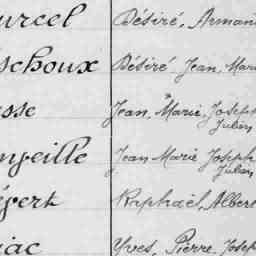 urcel Désiré, Armand
schoux Désiré Jean Mari
sse Jean, Marie, Joseph
Julien
nyeille Jean Marie Joseph
Julien
épert Raphaël, Albere
iac Yves, Pierre, Josep